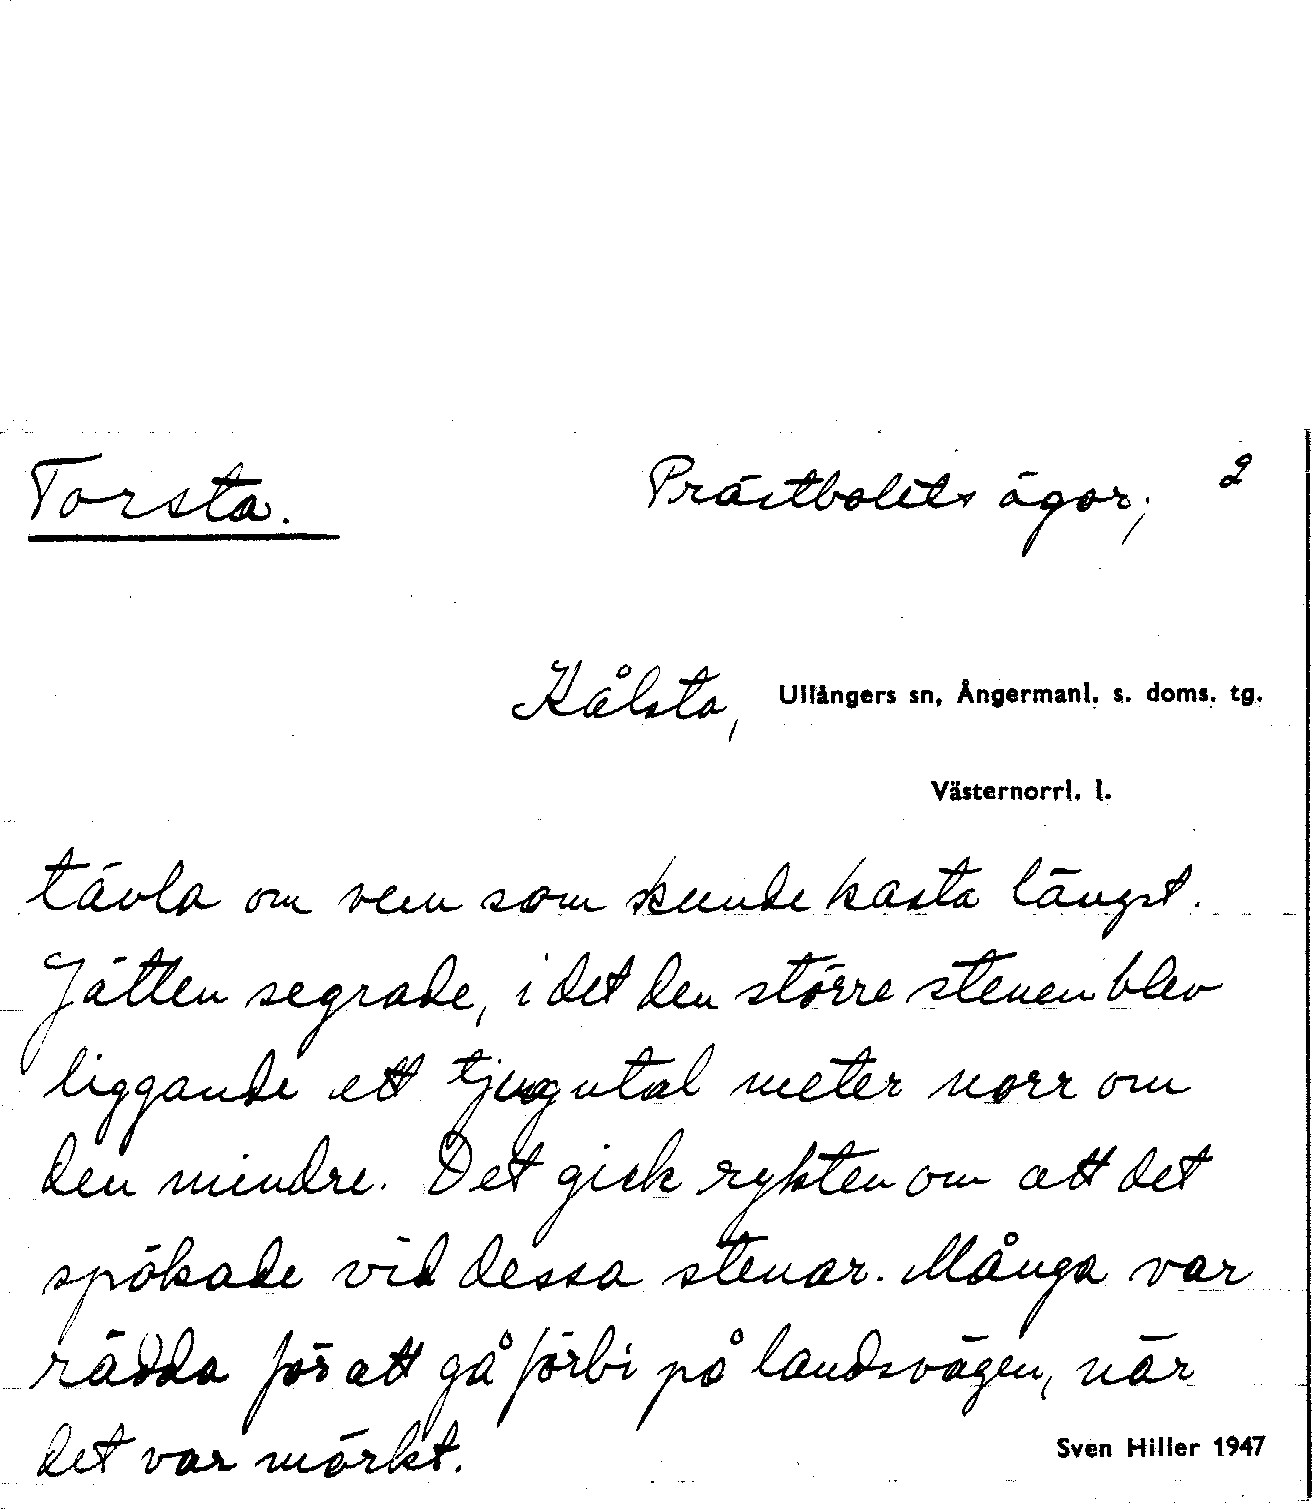 Torsta. Prästbolets ägor; 2
Kålsta, Ullångers sn, Ångermanl. s. doms. tg.
Västernorrl. l.
tävla om vem som kunde kasta längst.
Jätten segrade, i det den större stenen blev
liggande ett tjugutal meter norr om
den mindre. Det gick rykten om att det
spökade vid dessa stenar. Många var
rädda för att gå förbi på landsvägen, när
det var mörkt.
Sven Hiller 1947